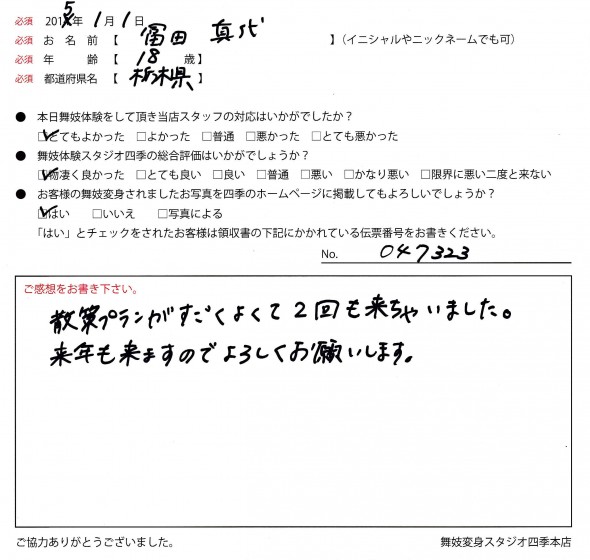 必須 2015年 1月1日
必須 お名前【 冨田 真代 】(イニシャルやニックネームでも可)
必須 年 齢【 18 歳】
必須 都道府県名【 栃木県 】
● 本日舞妓体験をして頂き当店スタッフの対応はいかがでしたか?
☑とてもよかった □よかった □普通 □悪かった □とても悪かった
● 舞妓体験スタジオ四季の総合評価はいかがでしょうか?
☑物凄く良かった □とても良い □良い □普通 □悪い □かなり悪い □限界に悪い二度と来ない
● お客様の舞妓変身されましたお写真を四季のホームページに掲載してもよろしいでしょうか?
☑はい □いいえ □写真による
「はい」とチェックをされたお客様は領収書の下記にかかれている伝票番号をお書きください。
No. 047323
ご感想をお書き下さい。
散策プランがすごくよくて2回も来ちゃいました。
来年も来ますのでよろしくお願いします。
ご協力ありがとうございました。 舞妓変身スタジオ四季本店